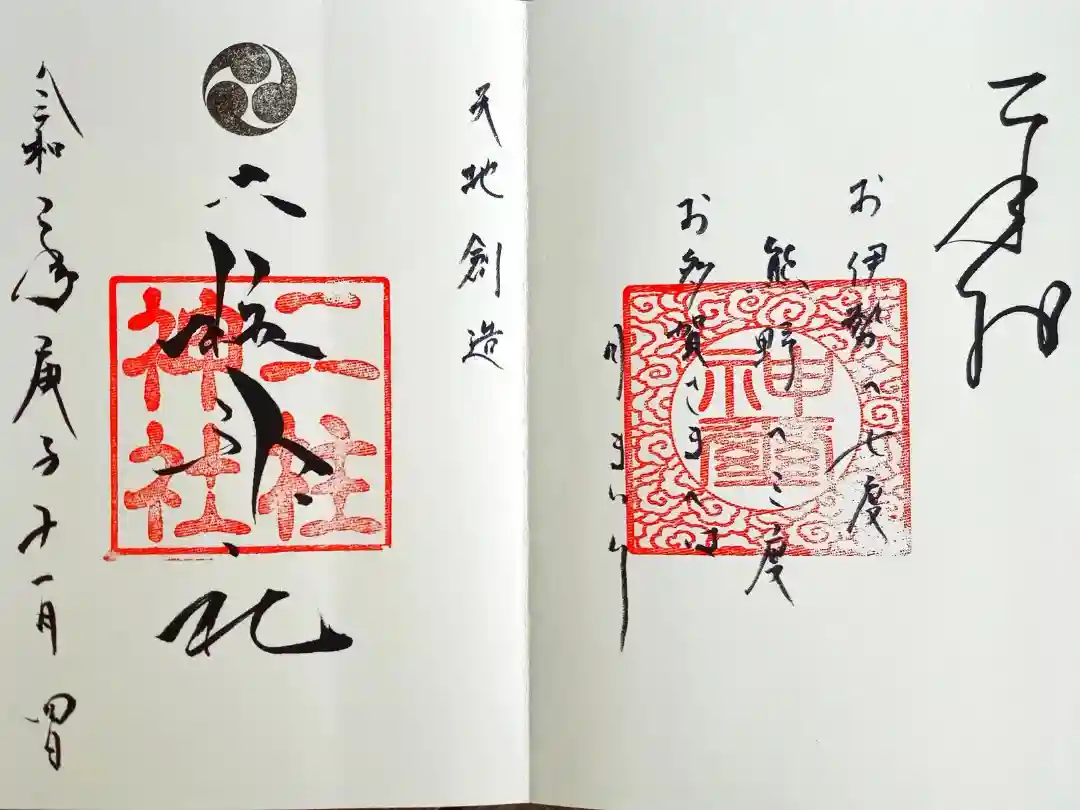 奉拝
お伊勢へ七度
熊野へ三度
お多賀さまへは
月まいり
天地創造
二柱
神社
令和二年庚子十一月四日